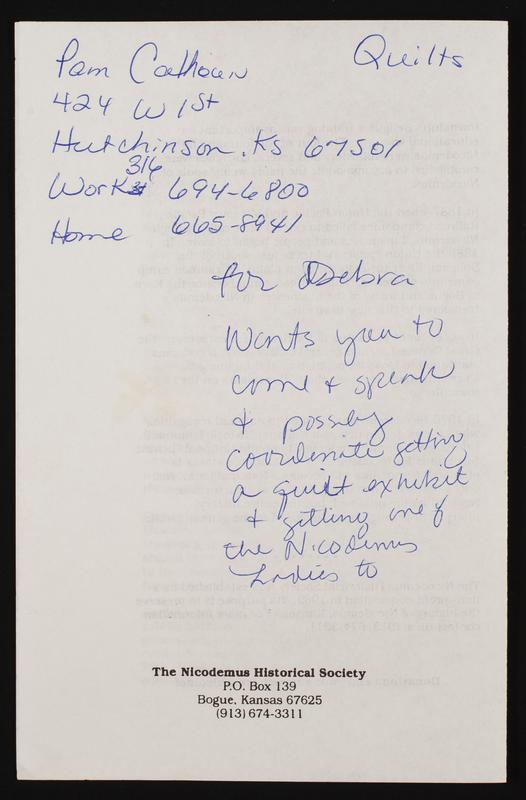 Pam Calhoun
Quilts
424 W 1st
Hutchinson, KS 67501
316
Work 694-6800
Home 665-8941
for Debra
Wants you to
come & speak
& possbly
coordinate getting
a quilt exhibit
& getting one of
the Nicodemus
Ladies to
The Nicodemus Historical Society
P.O. Box 139
Bogue, Kansas 67625
(913) 674-3311